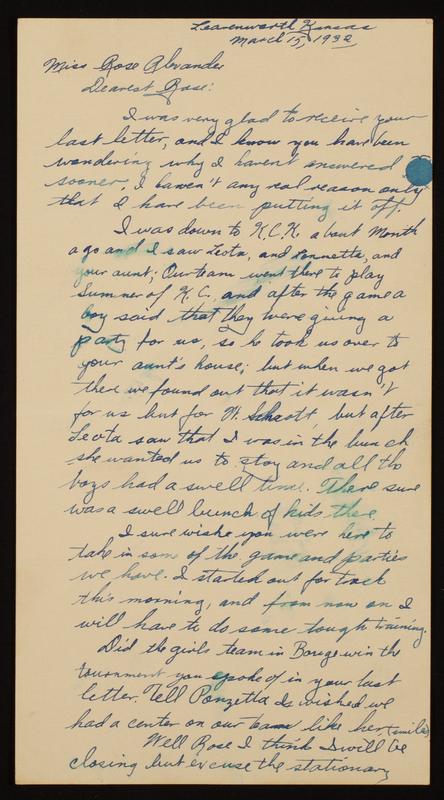 Leavenworth Kansas
March 15, 1932
Miss Rose Alexander
Dearest Rose:
I was very glad to receive your
last letter, and I know you have been
wondering why I haven't answered
sooner, I haven't any real reason only
that I have been putting it off.
I was down to K.C.K. about Month
ago and I saw Leota, and Lonnetta, and
your aunt; Our team went there to play
Sumner of K.C., and after the game a
boy said that they were giving a
party for us, so he took us over to
your aunt's house; but when we got
there we found out that it wasn't
for us but for W. but after
Leota saw that I was in the bunch
she wanted us to stay and all the
boys had a swell time. There sure
was a swell bunch of kids there.
I sure wishe you were here to
take in som of the game and parties
we have. I started out for track
this morning, and from now on I
will have to do some tough training.
Did the girls team in win the
tournment you spoke of in your last
letter. Tell Ponzetta Is wished we
had a center on our team like her, (smile)
Well Rose I think I will be
closing but excuse the stationary